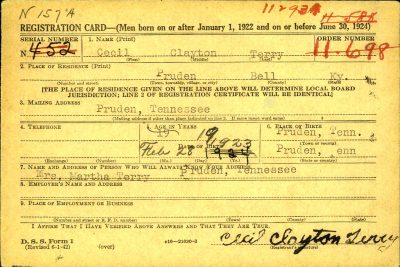 N 157 A
11-923 A
REGISTRATION CARD—(Men born on or after January 1, 1922 and on or before June 30, 1924)
SERIAL NUMBER
1. NAME (Print)
ORDER NUMBER
452
Cecil Clayton Terry
11-698
(First) (Middle) (Last)
2. PLACE OF RESIDENCE (Print)
Pruden Bell Ky.
(Number and street) (Town, township, village, or city) (County) (State)
[THE PLACE OF RESIDENCE GIVEN ON THE LINE ABOVE WILL DETERMINE LOCAL BOARD
JURISDICTION; LINE 2 OF REGISTRATION CERTIFICATE WILL BE IDENTICAL]
3. MAILING ADDRESS
Pruden, Tennessee
[Mailing address if other than place indicated on line 2. If same insert word same]
4. TELEPHONE
5. AGE IN YEARS
6. PLACE OF BIRTH
19
19
Pruden, Tenn.
DATE OF BIRTH
(Town or county)
Feb 28 1923
Pruden, enn
(Exchange) (Number) (Mo.) (Day) (Yr.) (State or country)
7. NAME AND ADDRESS OF PERSON WHO WILL ALWAYS KNOW YOUR ADDRESS
Mrs. Martha Terry Pruden, Tennessee
8. EMPLOYER'S NAME AND ADDRESS
9. PLACE OF EMPLOYMENT OR BUSINESS
(Number and street or R. F. D. number) (Town) (County) (State)
I AFFIRM THAT I HAVE VERIFIED ABOVE ANSWERS AND THAT THEY ARE TRUE.
D. S. S. Form 1
(Revised 6-1-42) (over)
16—21630-2
Cecil Clayton Terry
(Registrant's signature)